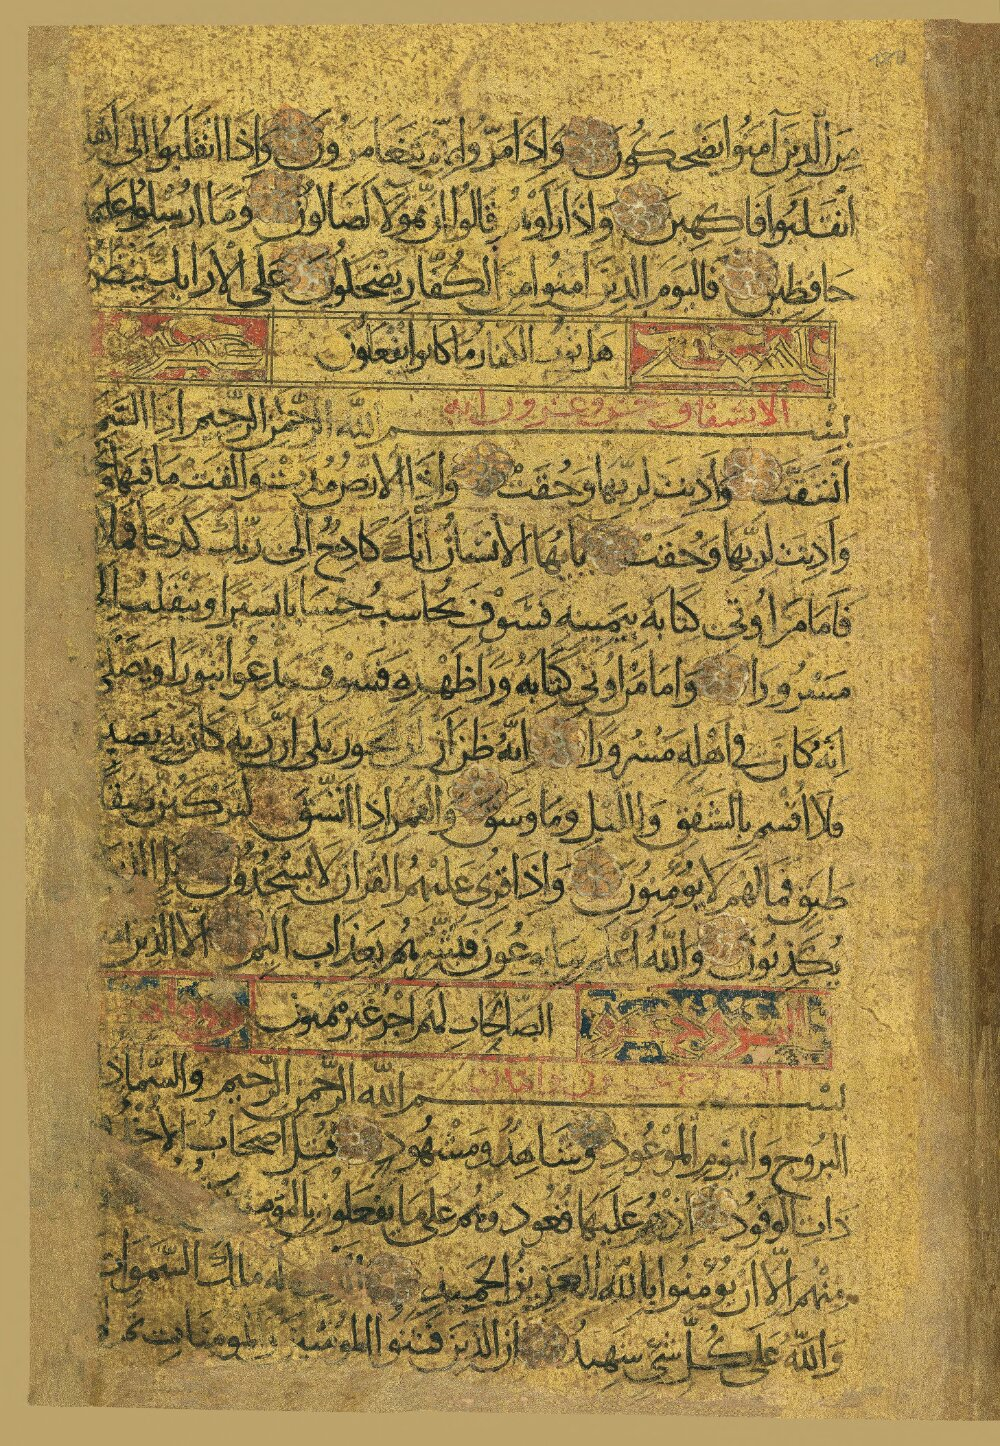 من الذين آمنوا يضحكون واذا مروا بهم يتغامزون واذا انقلبوا الى
انقلبوا فاكهين واذا راوهم قالوا ان هولا لضالون وما ارسلوا عليهم
حافظين فاليوم الذين امنوا من الكفار يضحكون على الارايك ينظرون
هل ثوب الكفار ما كانوا يفعلون
الانشقاق وعشرون ايه
بسم الله الرحمن الرحيم اذا السما
انشقت واذنت لربها وحقت واذا الارض مدت والقت ما فيها و
واذنت لربها وحقت يايها الانسان انك كادح الى ربك كدحا فملا
فاما من اوتي كتابه بيمينه فسوف يحاسب حسابا يسيرا وينقلب الى
مسرورا واما من اوتي كتابه ورا ظهره فسوف يدعوا ثبورا ويصلى
انه كان في اهله مسرورا انه ظن ان لن يحور بلى ان ربه كان به بصيرا
فلا اقسم بالشفق والليل وما وسق والقمر اذا اتسق لتركبن طبقا
طبق فما لهم لا يؤمنون واذا قرى عليهم القران لا يسجدون بل الذين
يكذبون والله اعلم بما يوعون فبشرهم بعذاب اليم الا الذين
الصالحات لهم اجر غير ممنون
بسم الله الرحمن الرحيم والسما ذات
البروج واليوم الموعود وشاهد ومشهود قتل اصحاب الاخدود
ذات الوقود اذ هم عليها قعود وهم على ما يفعلون بالمؤمنين
منهم الا ان يؤمنوا بالله العزيز الحميد الذي له ملك السموات
والله على كل شي شهيد ان الذين فتنوا المؤمنين والمومنات ثم